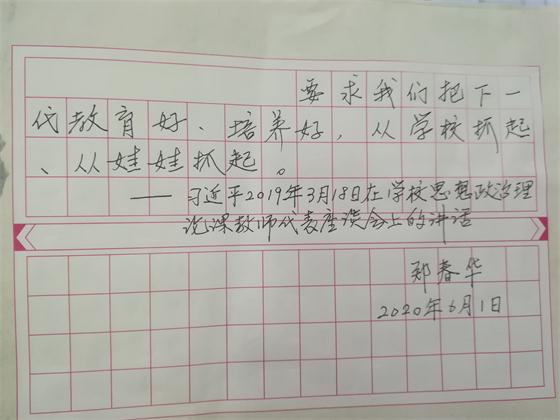 要求我们把下一
代教育好、培养好，从学校抓起
、从娃娃抓起。
——习近平2019年3月18日在学校思想政治理
论课教师代表座谈会上的讲话
郑春华
2020年6月1日